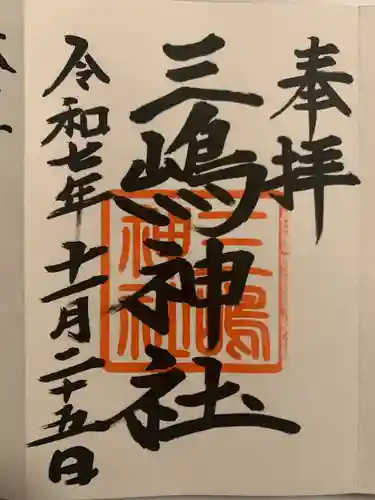 奉拝
三嶋神社
令和七年十一月二十五日
三嶋
神社